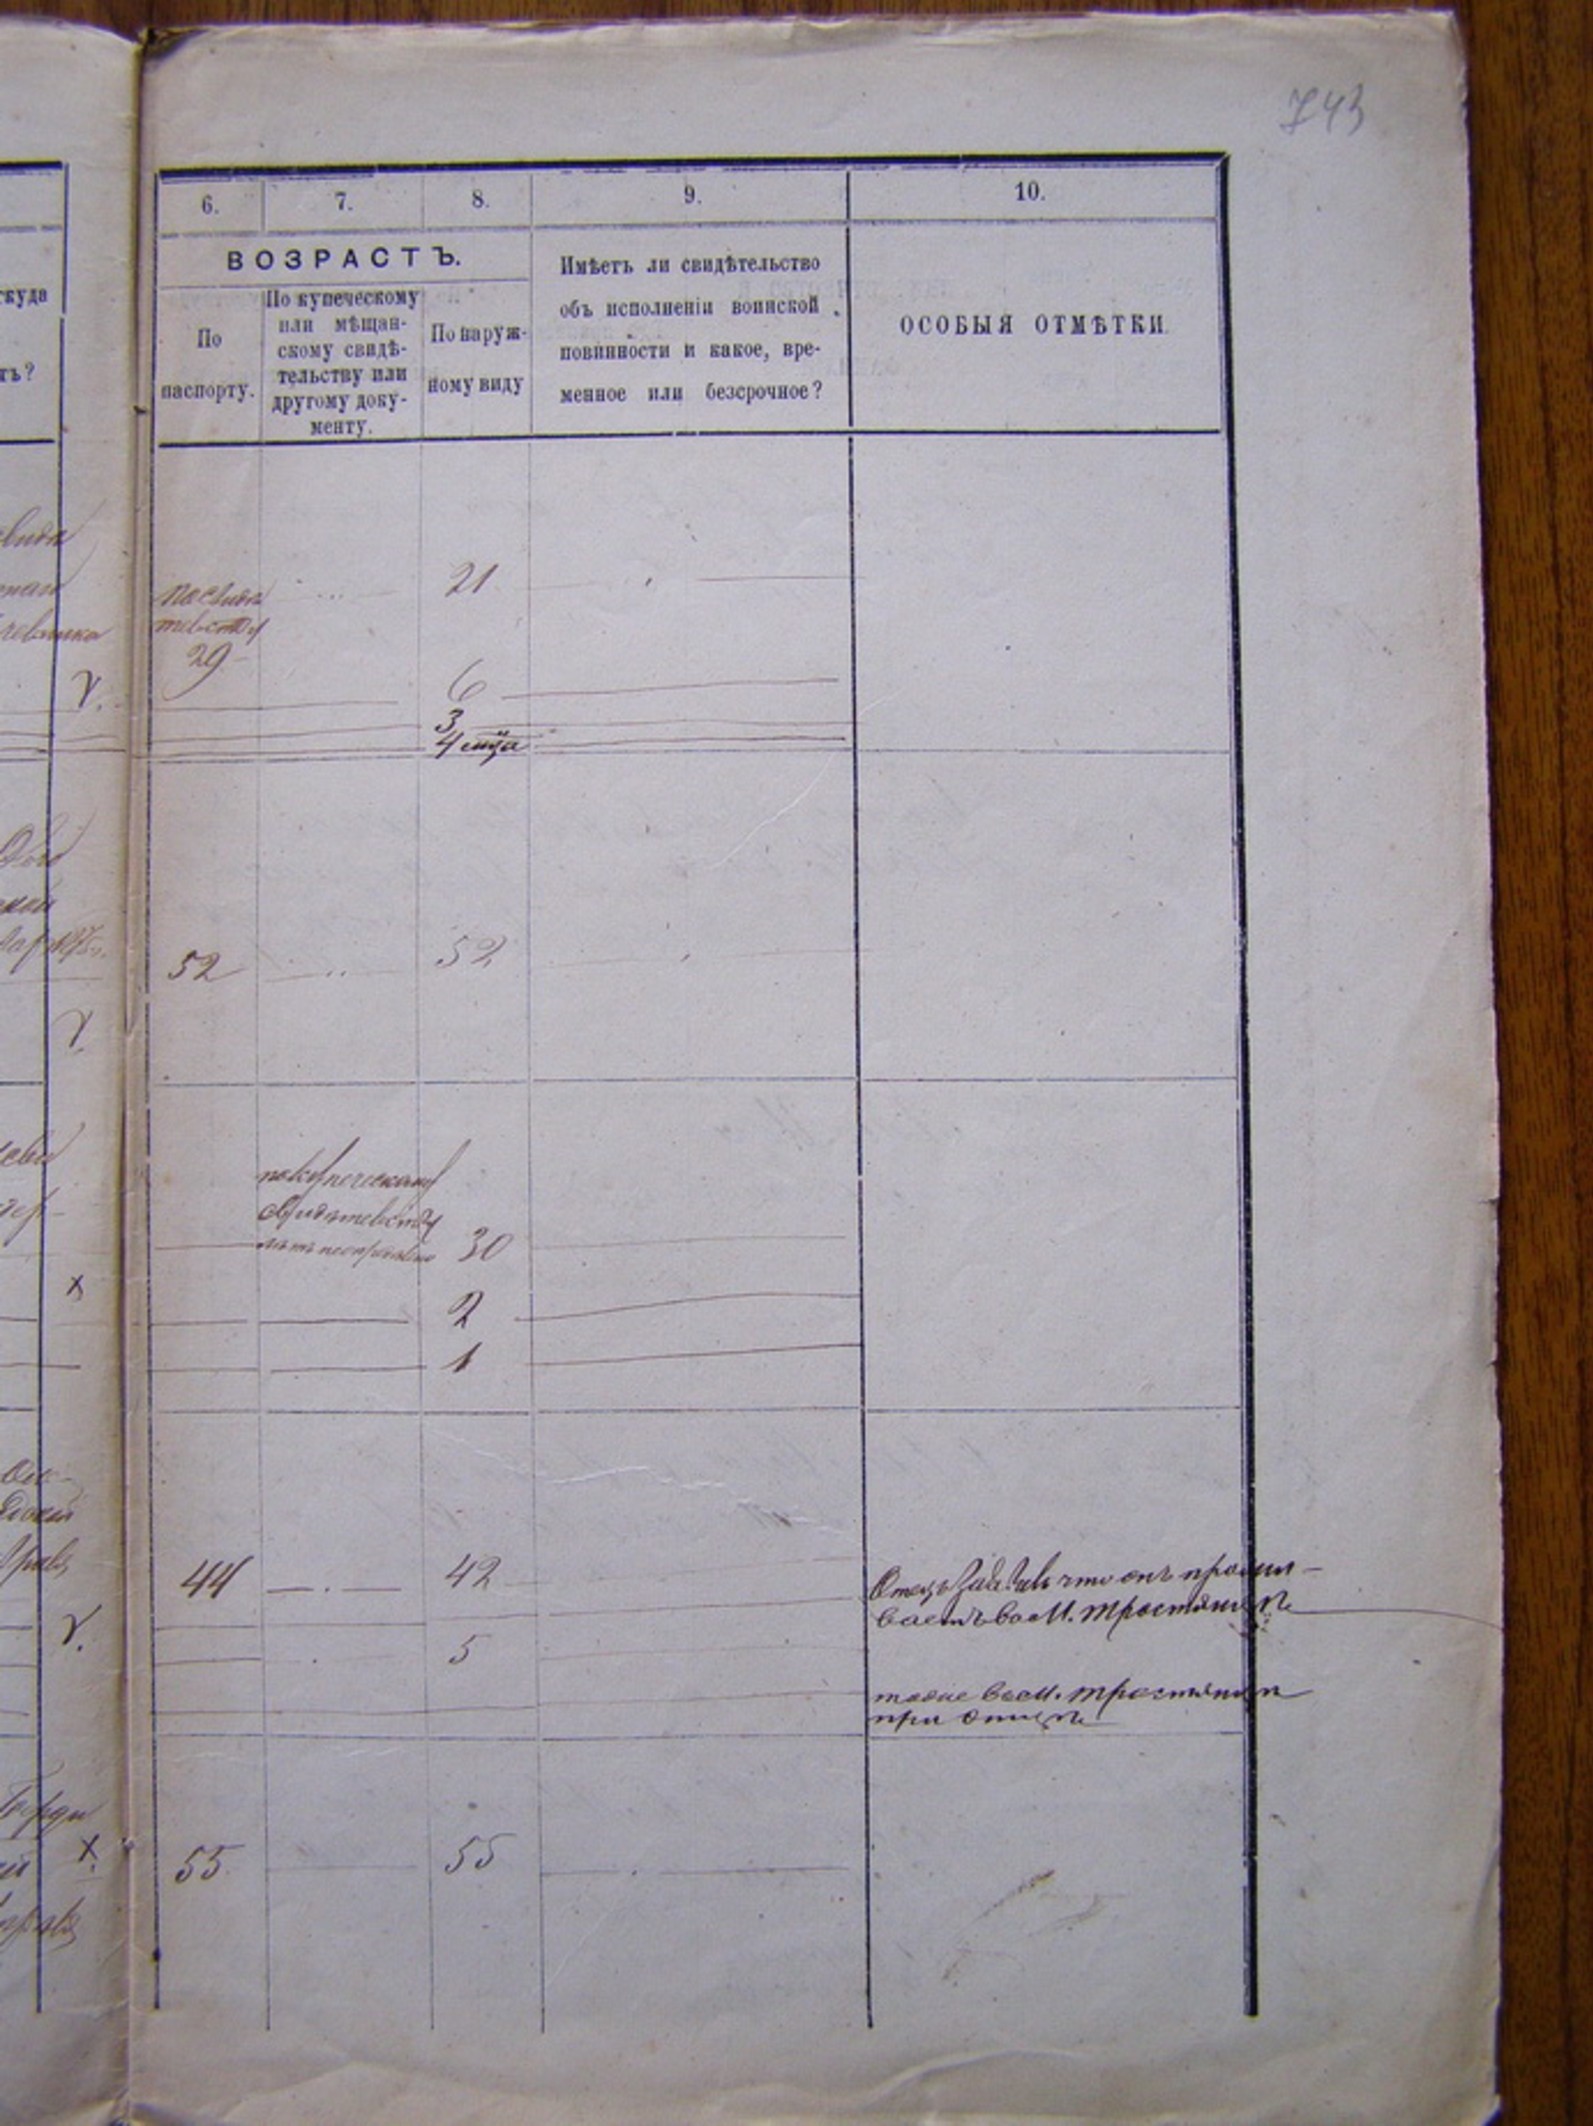 743
6. 7. 8. 9. 10.
ВОЗРАСТЪ.
По
паспорту.
По купеческому
или мѣщан-
скому свидѣ-
тельству или
другому доку-
менту.
По наруж-
ному виду
Имѣетъ ли свидѣтельство
объ исполненіи воинской
повинности и какое, вре-
менное или безсрочное?
ОСОБЫЯ ОТМѢТКИ.
куда
ть?
29
21
6
3
4 мѣца
52 52
по купеческому
свидѣтельству
30
2
1
44 42
5
Отецъ что онъ прожи-
ваетъ въ м. Тростянцѣ
тоже въ м. Тростянцѣ
при отцѣ
55 55